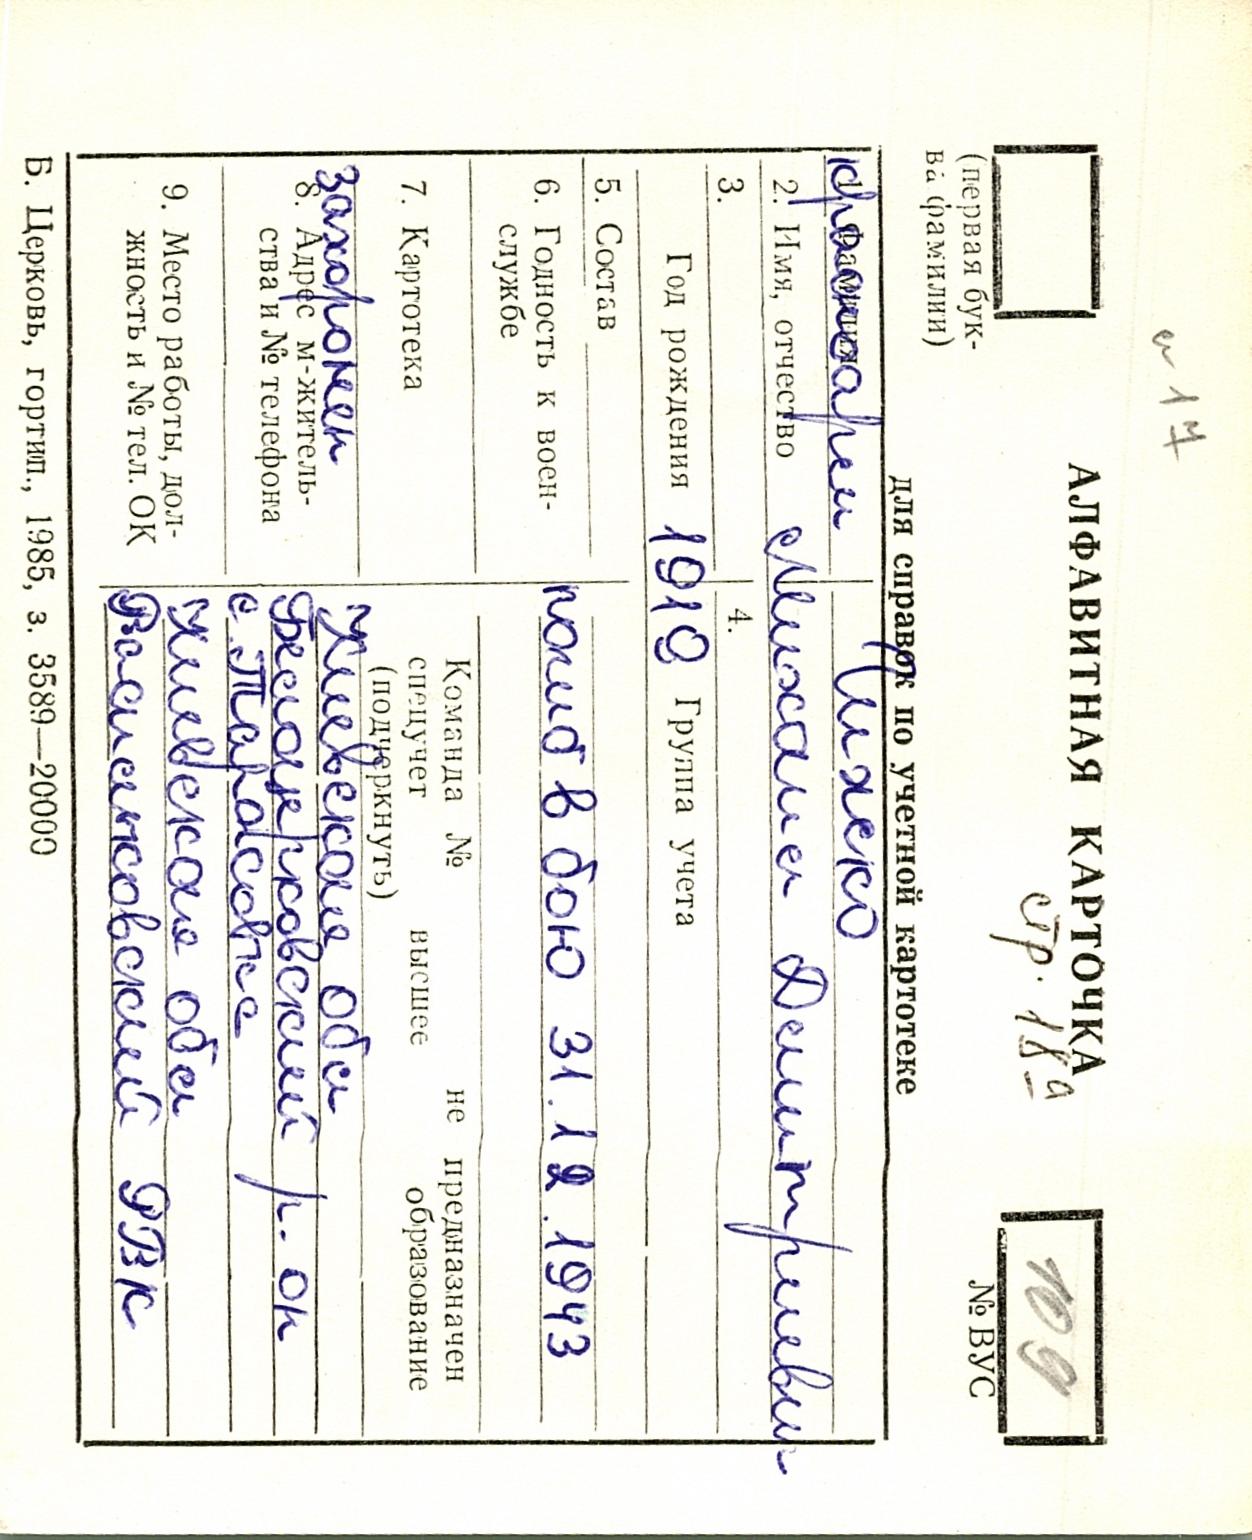 л 17
АЛФАВИТНАЯ КАРТОЧКА
стр. 18а
109
(первая бук-
ва фамилии)
№ ВУС
для справок по учетной картотеке
красноарм Чижко
2. Имя, отчество Михаил Дмитриевич
3. 4.
Год рождения 1919 Группа учета
5. Состав
6. Годность к воен-
службе
погиб в бою 31.12.1943
7. Картотека
Команда № не предназначен
спецучет высшее образование
(подчеркнуть)
захоронен
8. Адрес м-житель-
ства и № телефона
Киевская обл
Белоцерковский р-он
с. Тарасовка
9. Место работы, дол-
жность и № тел. ОК
Киевская обл
Васильковский РВК
Б. Церковь, гортип., 1985, з. 3589—20000